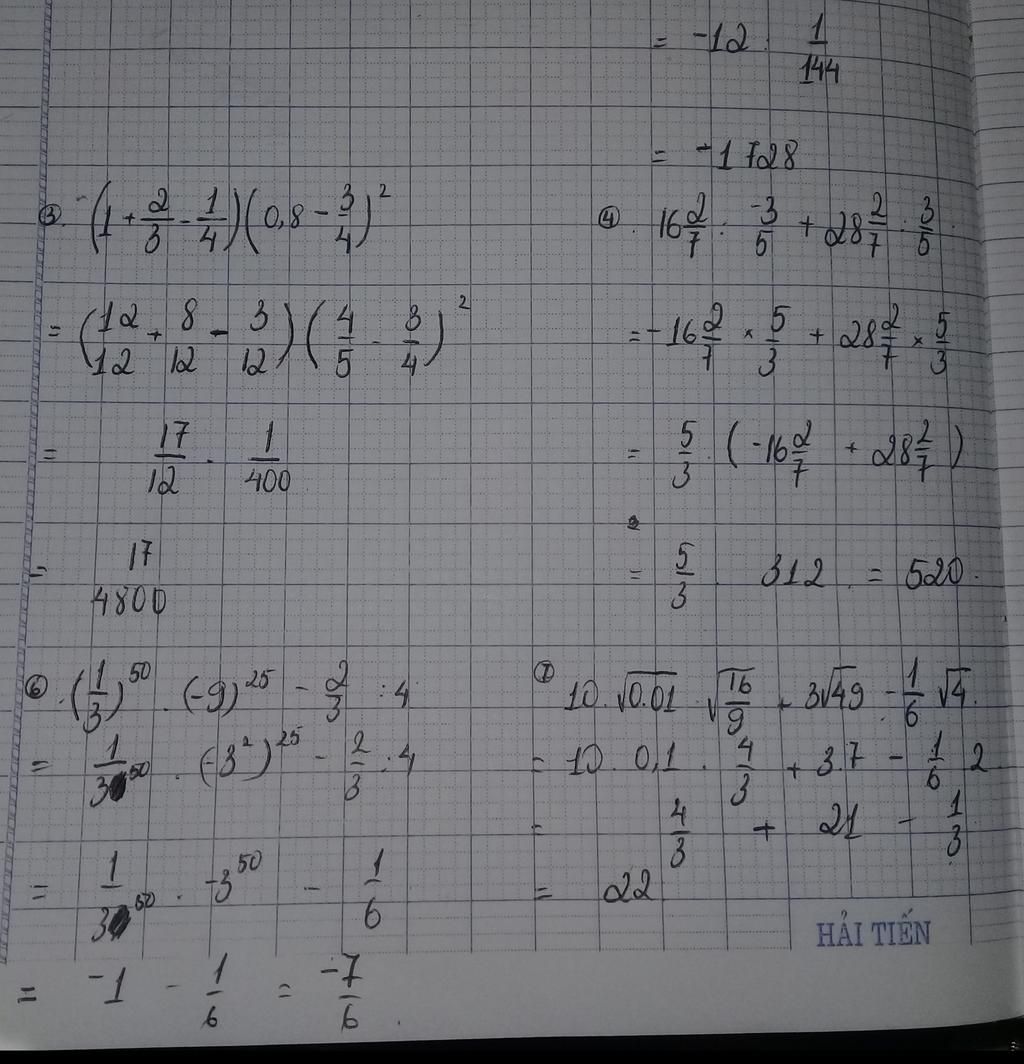 = -12 : 1/144
= -1728
③. (1 + 2/3 - 1/4)(0,8 - 3/4)²
= (12/12 + 8/12 - 3/12)(4/5 - 3/4)²
= 17/12 . 1/400
= 17/4800
④. 16 2/7 : -3/5 + 28 2/7 : 3/5
= -16 2/7 × 5/3 + 28 2/7 × 5/3
= 5/3 . (-16 2/7 + 28 2/7)
= 5/3 . 312 = 520.
⑥. (1/3)⁵⁰ . (-9)²⁵ - 2/3 : 4
= 1/3⁵⁰ . (-3²)²⁵ - 2/3 : 4
= 1/3⁵⁰ . -3⁵⁰ - 1/6
= -1 - 1/6 = -7/6.
⑦ 10.√0.01 . √16/9 + 3√49 - 1/6 √4
= 10 . 0,1 . 4/3 + 3.7 - 1/6 2
= 4/3 + 21 - 1/3
= 22
HẢI TIẾN